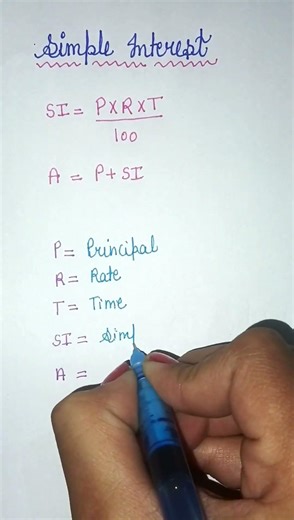 Simple Interest
SI = P×R×T
100
A = P+SI
P = Principal
R = Rate
T = Time
SI = Simp
A =